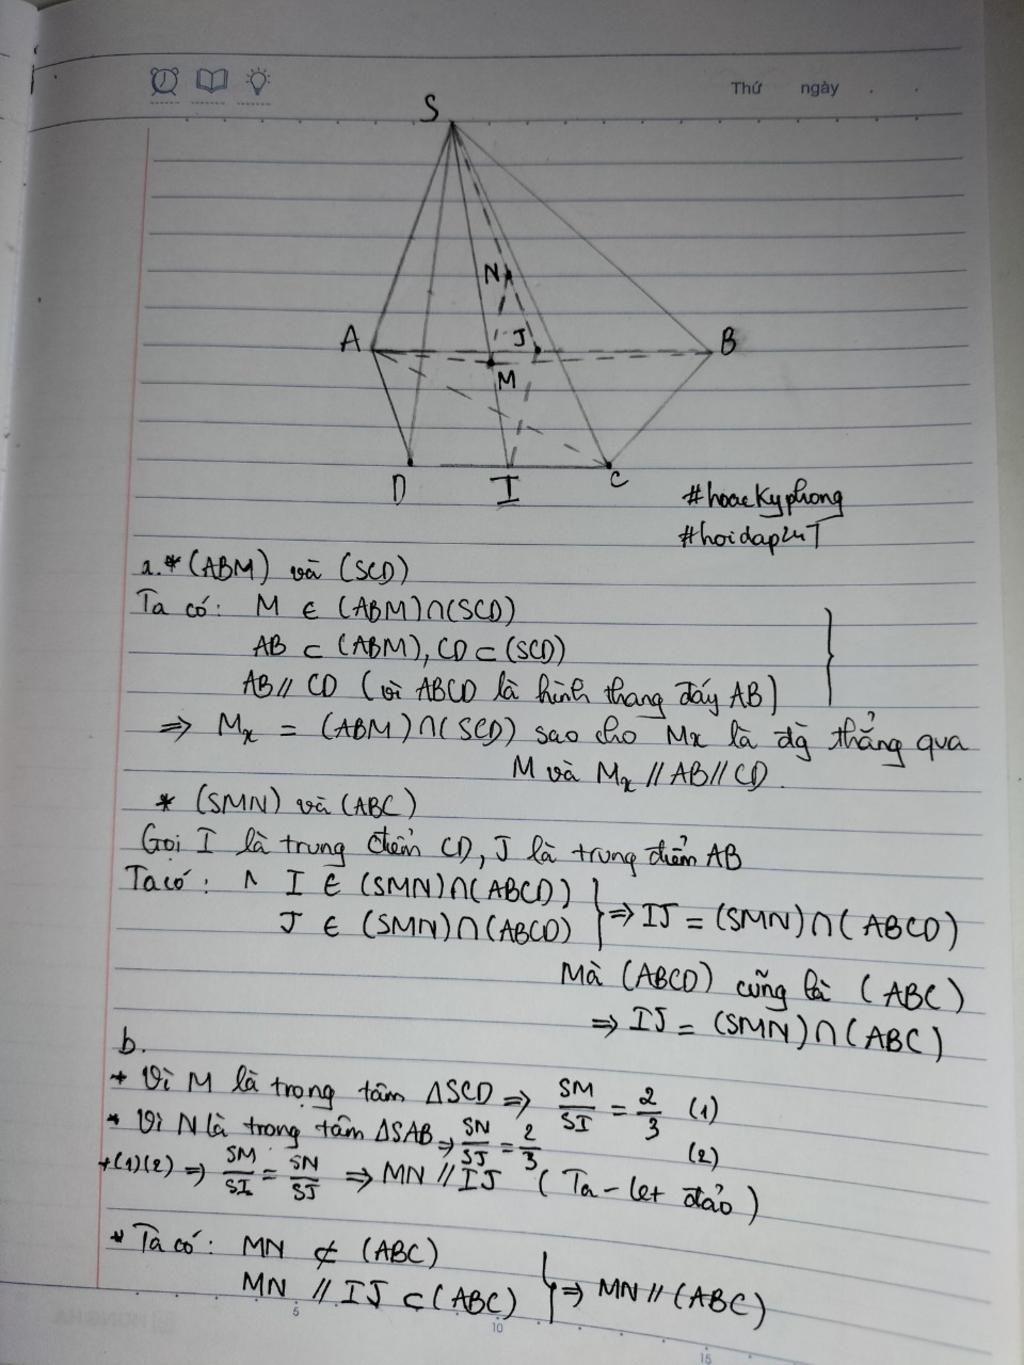 Thứ ngày
S
N
A
J
B
M
D
I
C
#hoackyphong
#hoidap247
a.* (ABM) và (SCD)
Ta có: M ∈ (ABM)∩(SCD)
AB ⊂ (ABM), CD ⊂ (SCD)
AB // CD (vì ABCD là hình thang đáy AB)
⇒ Mx = (ABM)∩(SCD) sao cho Mx là đg thẳng qua
M và Mx // AB // CD.
* (SMN) và (ABC)
Gọi I là trung điểm CD, J là trung điểm AB
Ta có: I ∈ (SMN)∩(ABCD)
J ∈ (SMN)∩(ABCD) } ⇒ IJ = (SMN)∩(ABCD)
Mà (ABCD) cũng là (ABC)
⇒ IJ = (SMN)∩(ABC)
b.
+ Vì M là trọng tâm ΔSCD ⇒ SM/SI = 2/3 (1)
+ Vì N là trong tâm ΔSAB ⇒ SN/SJ = 2/3 (2)
+(1)(2) ⇒ SM/SI = SN/SJ ⇒ MN // IJ (Ta-let đảo)
* Ta có: MN ⊄ (ABC)
MN // IJ ⊂ (ABC) } ⇒ MN // (ABC)
5
10
15